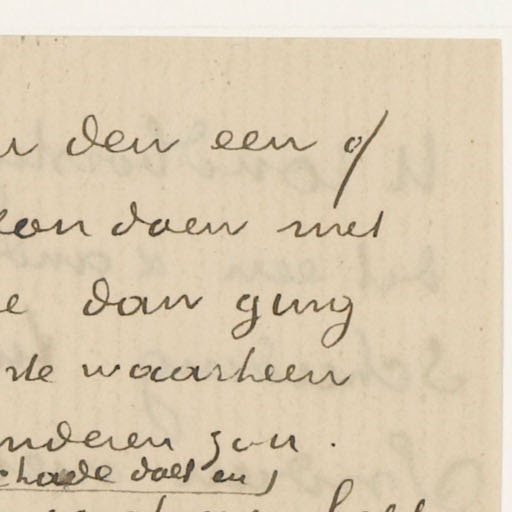 den een of
kon doen met
dan ging
waarheen
anderen zou.
schade doet en